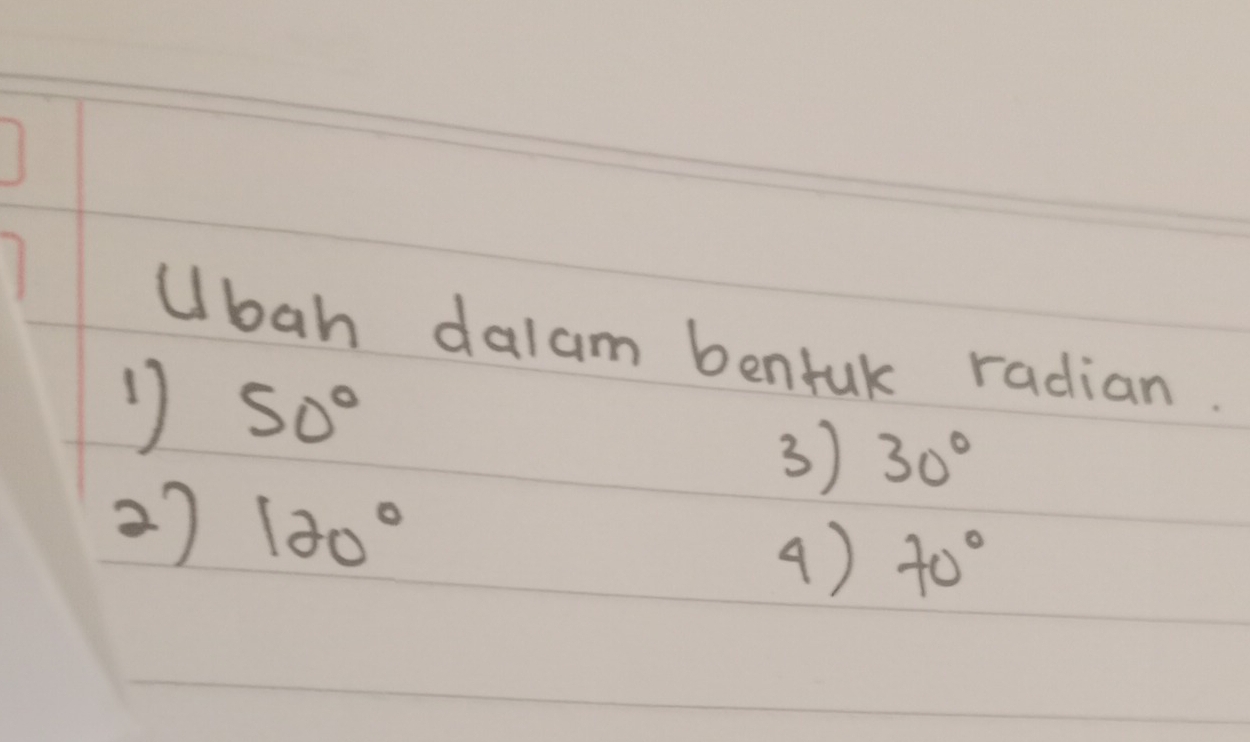 Ubah dalam bentuk radian.
1) 50°
2) 120°
3) 30°
4) 70°